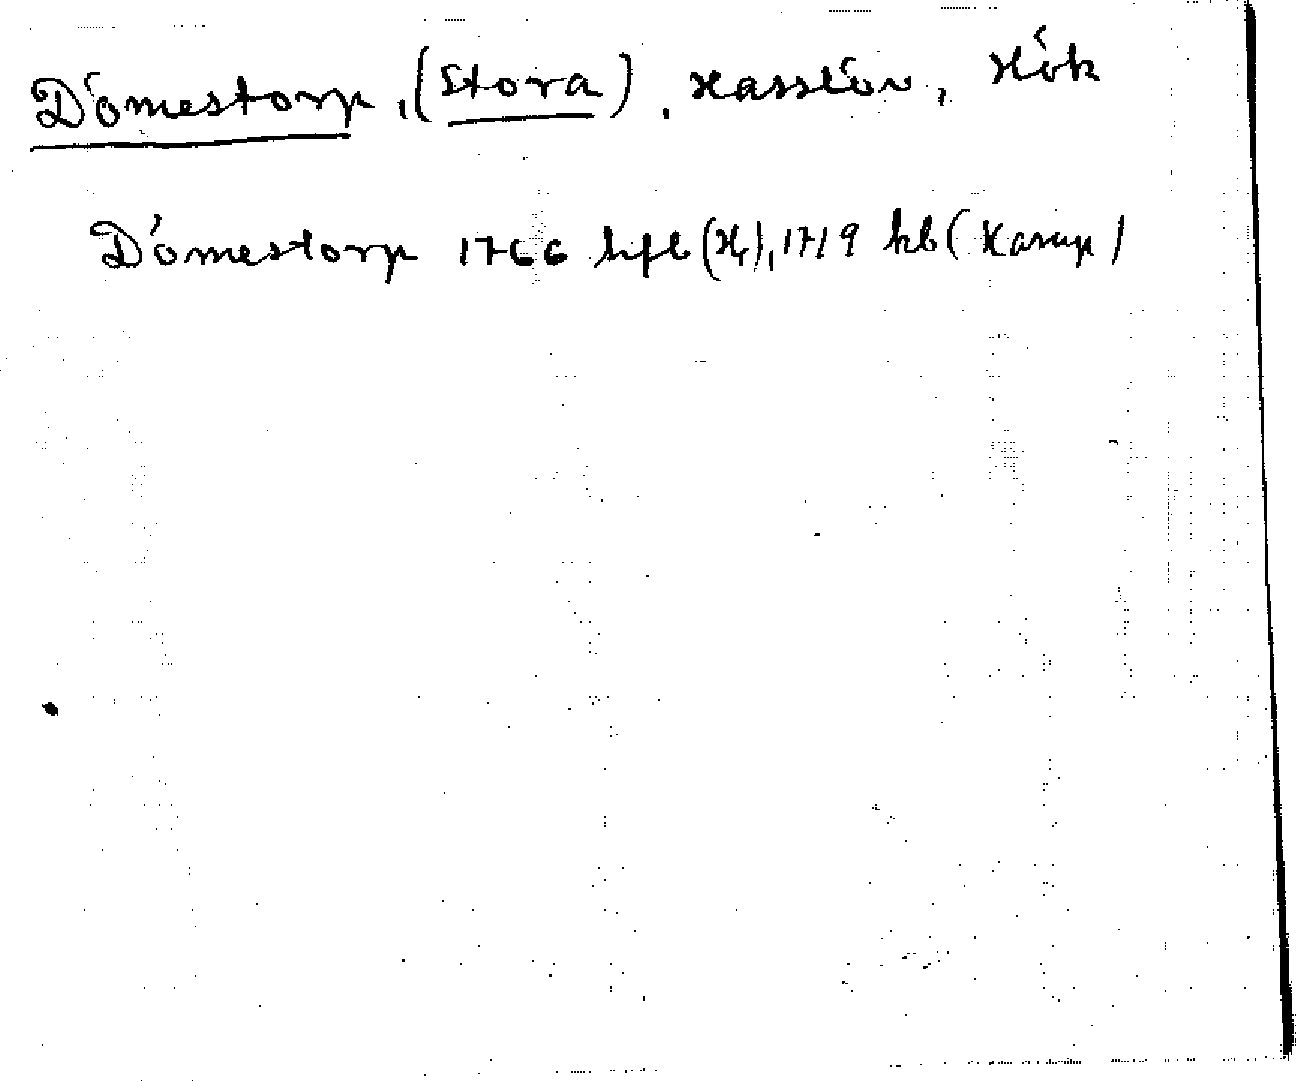 Dömestorp, (Stora), Hasslöv, Hök
Dömestorp 1766 hfl (H), 1719 kb (Karup)